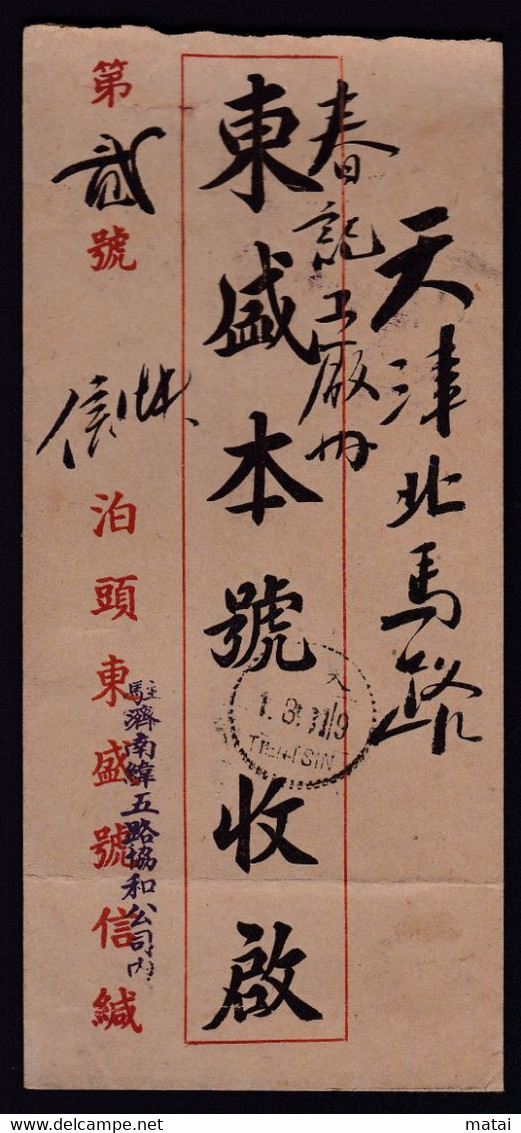 天津北馬路
春記工廠內
東盛本號收啟
第貳號
信
泊頭東盛號信緘
駐濟南緯五路協和公司內
天
TIENTSIN
delcampe.net
matai